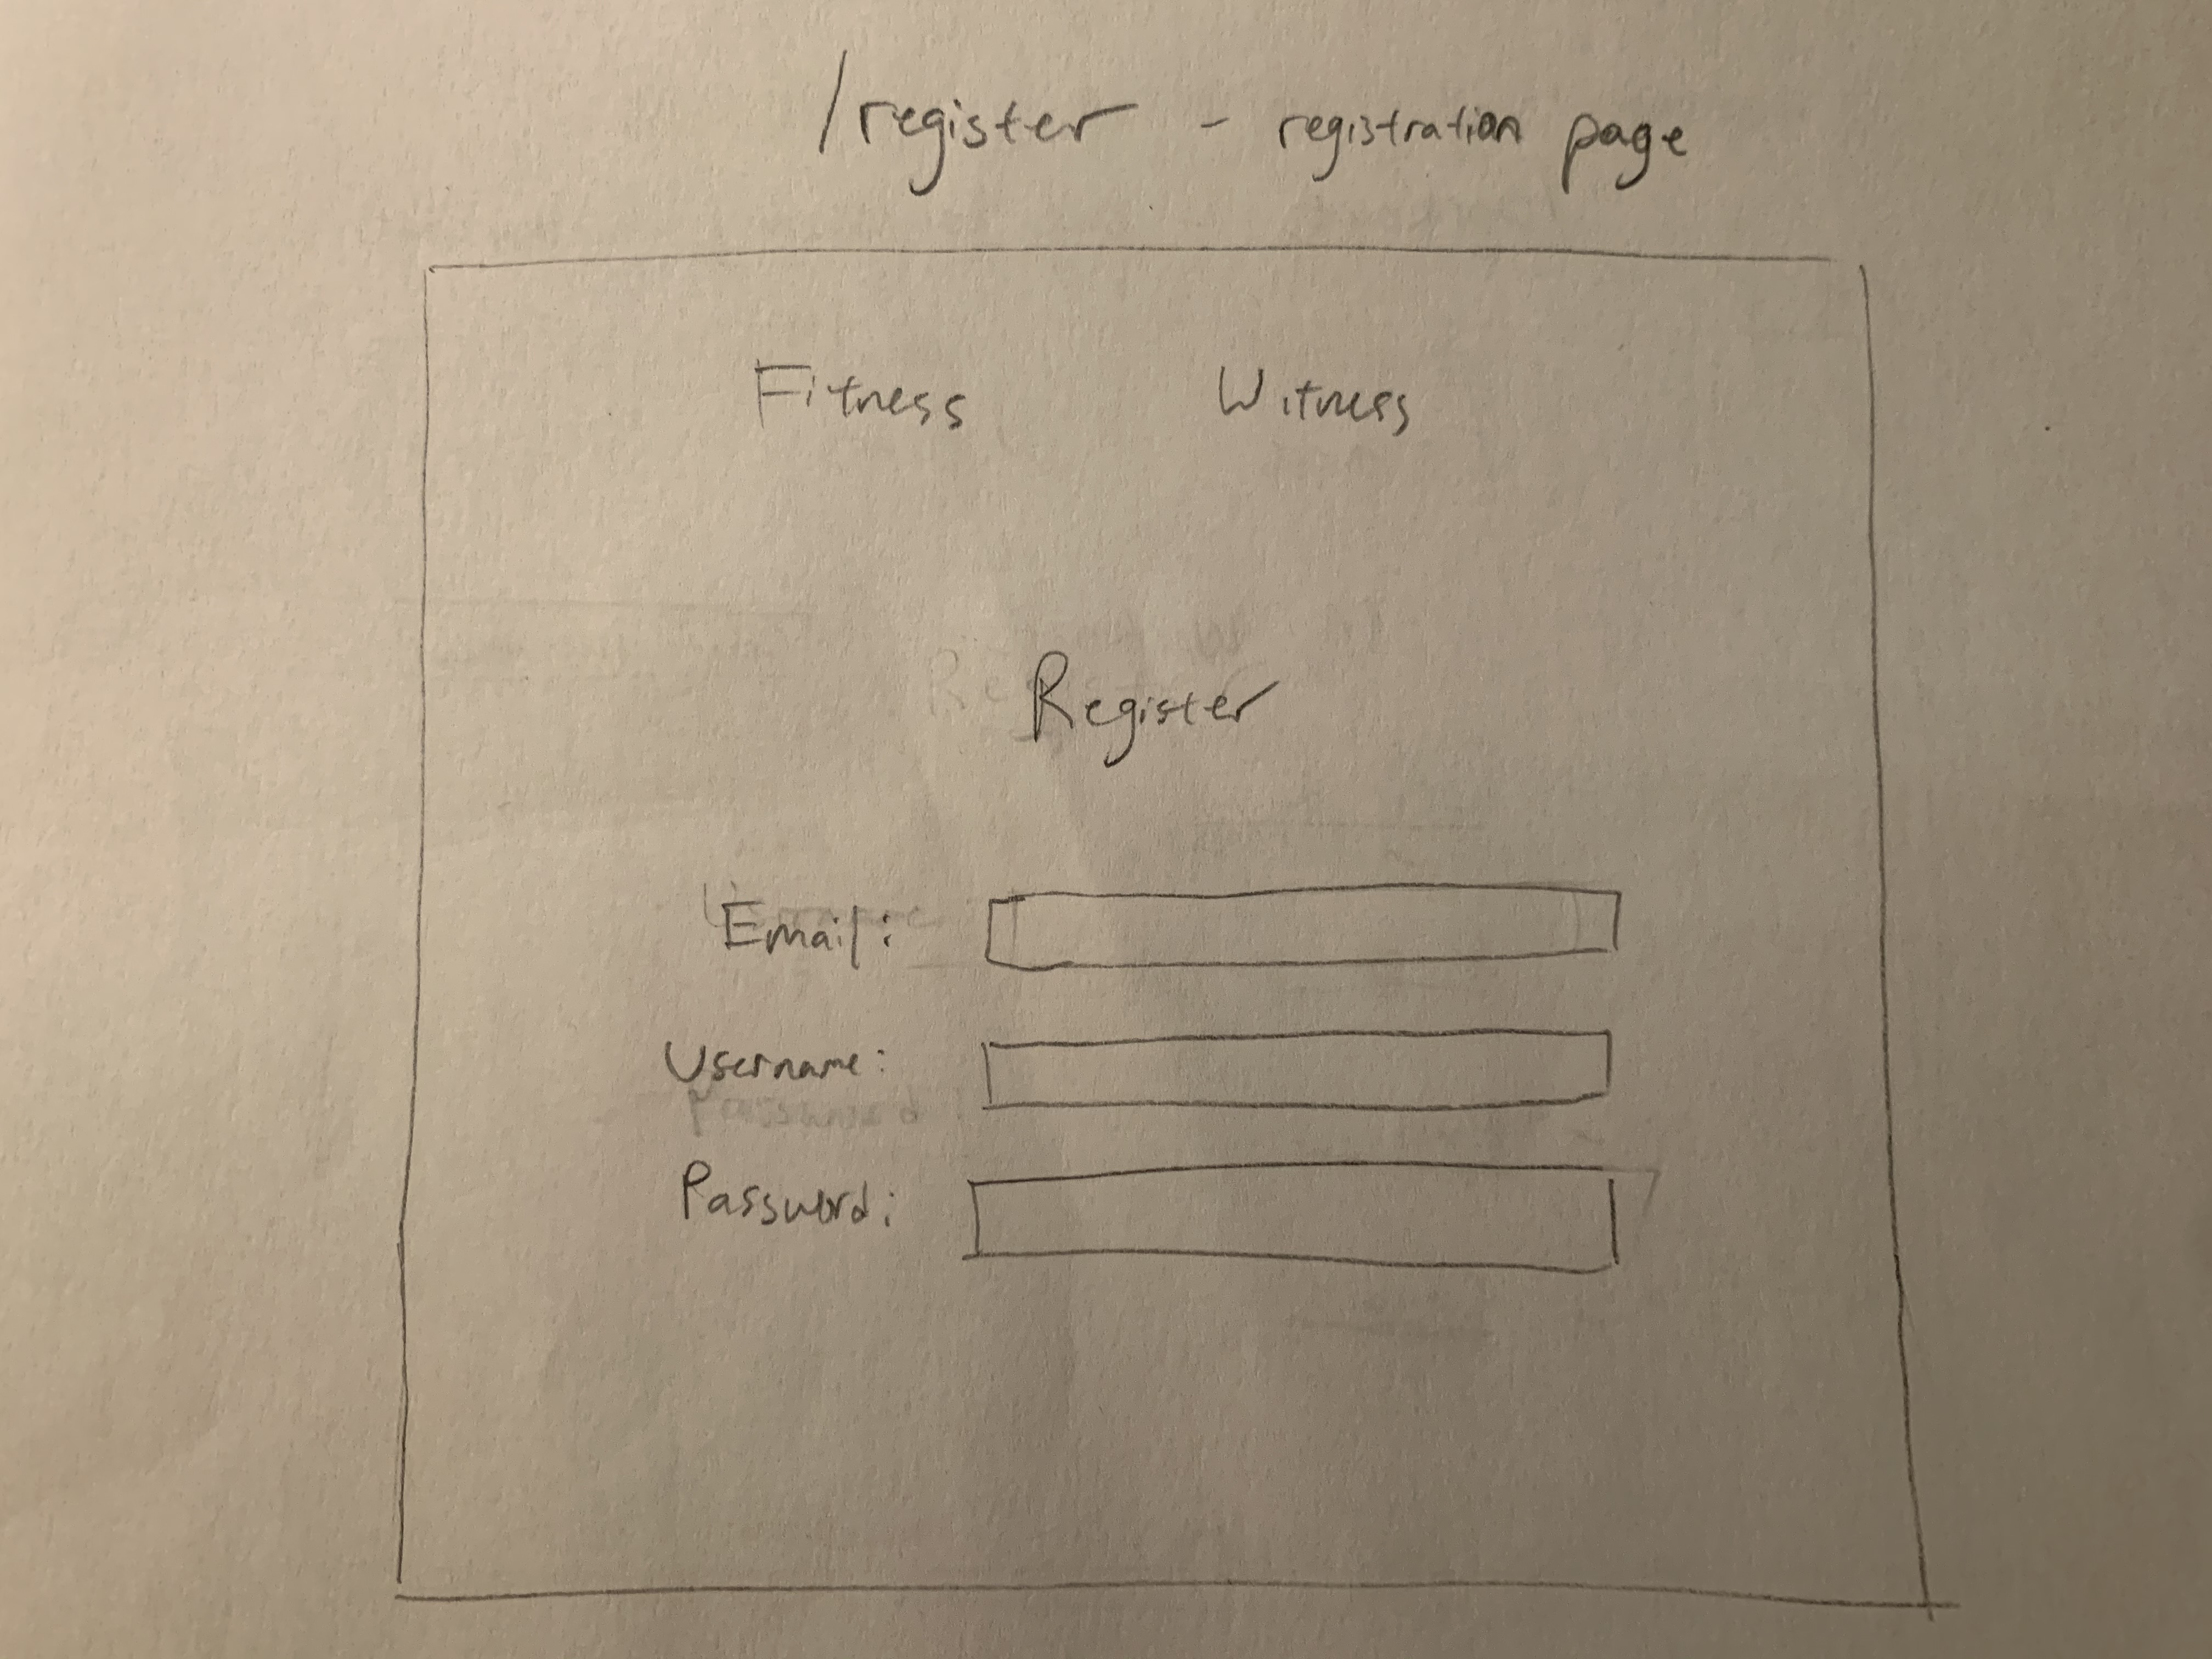 /register - registration page
Fitness Witness
Register
Email:
Username:
Password
Password: